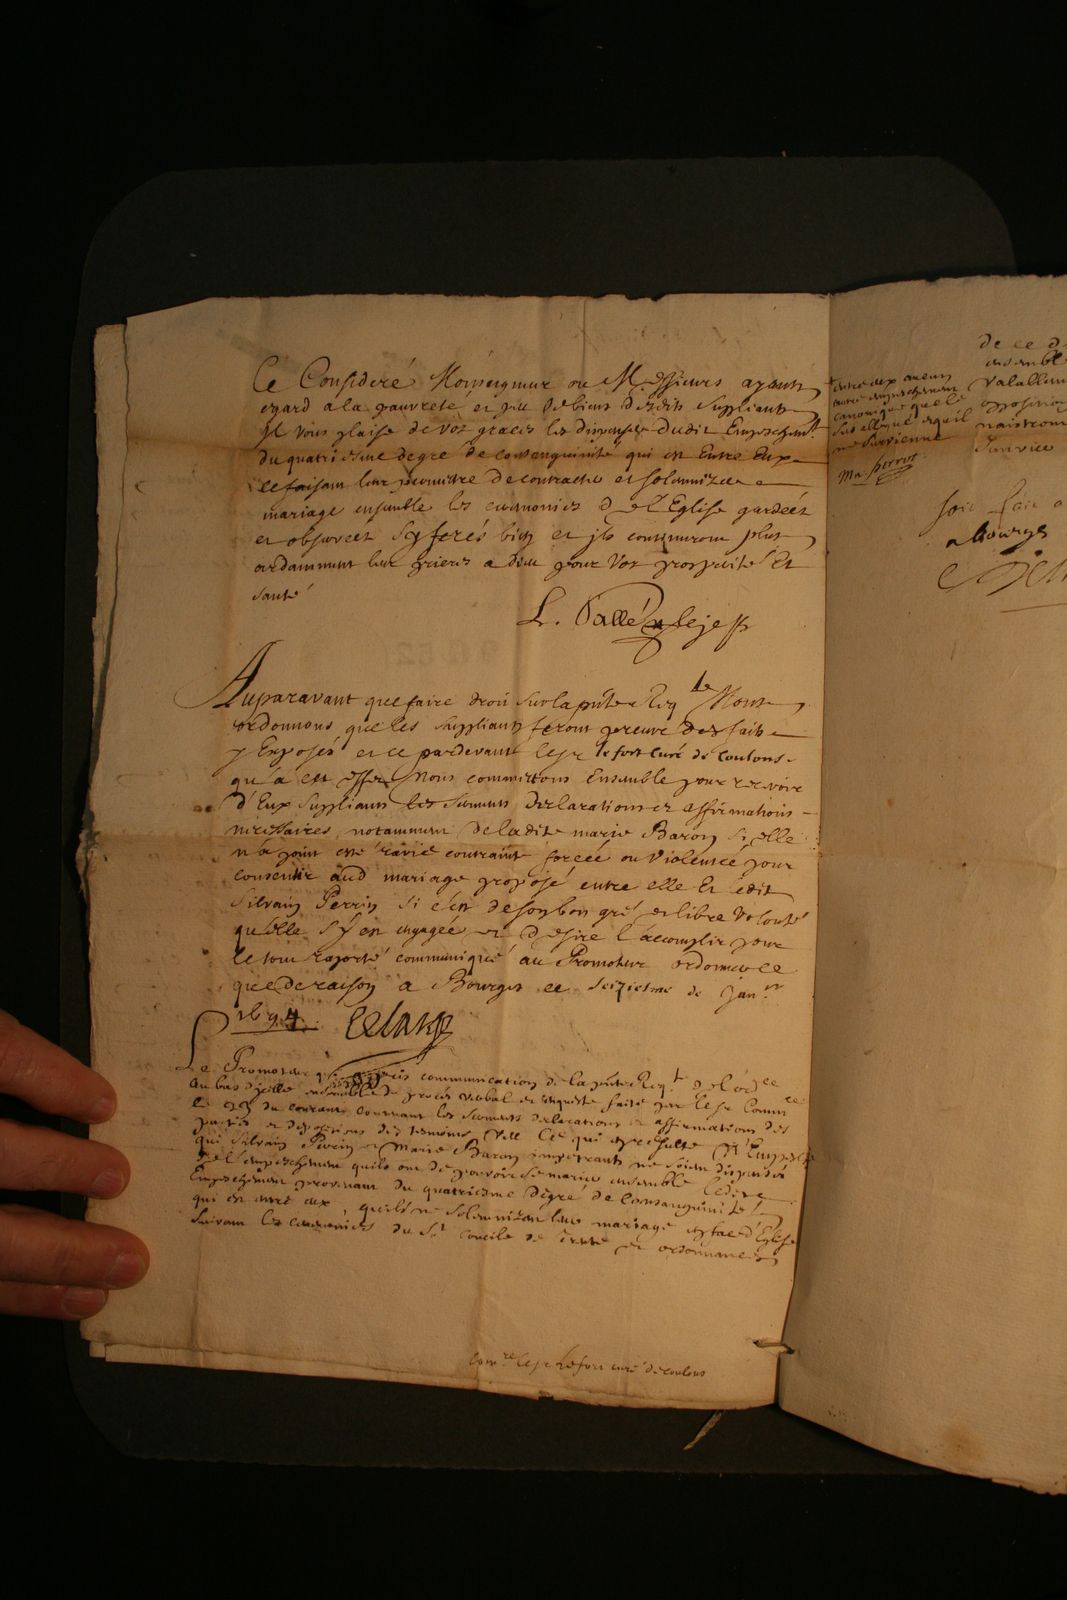 Ce Consideré Monseigneur ou Messieurs ayant
egard a la pauvreté et peu de biens desdits suppliants
Il vous plaise de vos graces les dispenser dudit Empeschemt
du quatriesme degre de consanguinite qui est Entre Eux
ce faisant leur permettre de contracter et solemnizer
mariage ensemble les ceremonies de l'Eglise gardeés
et observeés Sy ferés bien et ils continuront plus
ardamment leur prieres a dieu pour vos prosperité Et
santé
L. Vallée
Auparavant que faire droit sur la pnte Reqte Nous
ordonnons que les suppliants feront preuve des faits
y Exposés et ce pardevant le sr le fort Curé de Coulons
qu'a cet effet Nous commettons Ensemble pour recevoir
d'Eux suppliants les serments declarations et affirmations
necessaires, notamment de ladite marie Baron si elle
n'a point esté ravie contrainte forcée ou violentée pour
consentir aud mariage proposé entre elle Et ledit
Silvain Perrin Si c'est de son bon gré et libre volonté
qu'elle s'y est engagée et desire l'acomplir pour
le tout raporté communiqué au Promoteur ordonner ce
que de raison a Bourges ce Seiziesme de Janer
1694
Le Promoteur qui a pris communication de la pnte Reqt de l'ordce
au bas d'icelle ensemble du proces verbal et enqueste faite par le sr Commre
le du courant contenant les serments declarations et affirmations des
parties et depositions des temoins, Veu Ce qui en resulte N'Empesche
que Silvain Perrin et Marie Baron impetrants ne soient dispensés
de l'empeschement quils ont de pouvoir se marier ensemble ledit
Empeschement provenant du quatriesme degré de Consanguinité
qui est entre eux, qu'ils ne solemnizent leur mariage en face d'Eglise
suivant les ceremonies du St Concile de trente et ordonnances
Comre le sr Lefort curé de coulons
entre eux aucun
autre empeschement
canonique que le
sus allegué et qu'il
ne survienne
Ma. perrot
de ce d
ensemble
opposition
Janvier
soit fait a
a bourges